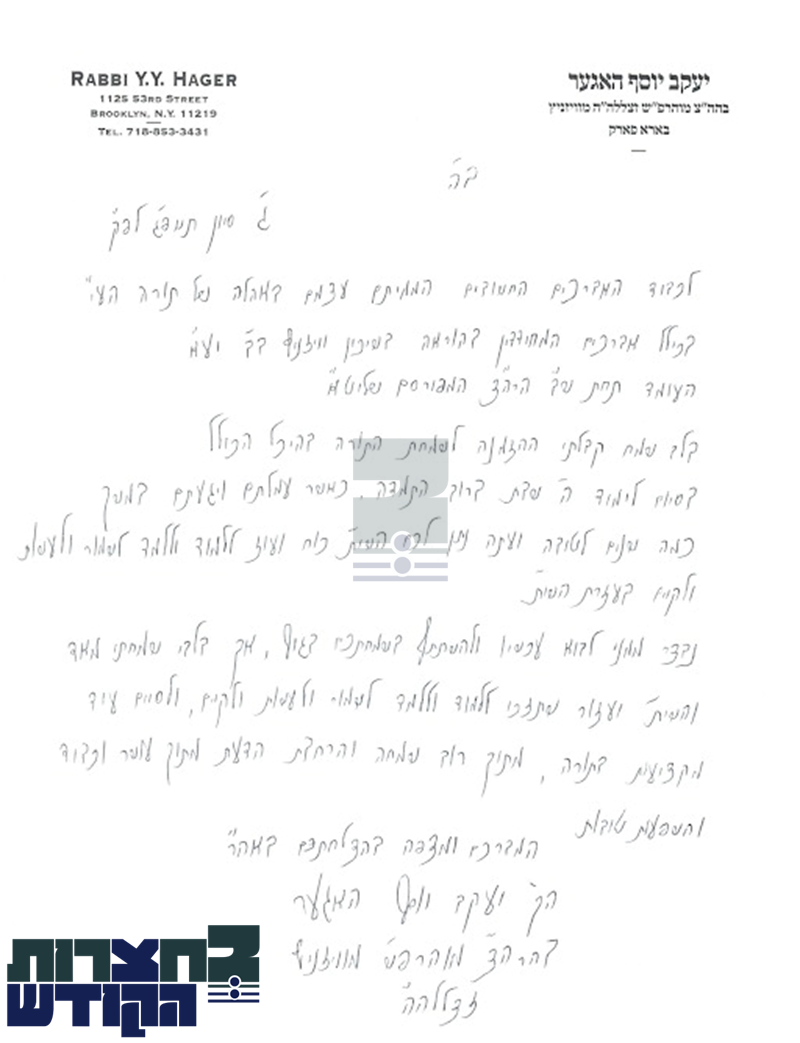 RABBI Y.Y. HAGER
1125 53RD STREET
BROOKLYN, N.Y. 11219
TEL. 718-853-3431
יעקב יוסף האגער
בהה"צ מוהרפ"ש זצללה"ה מוויזניץ
בארא פארק
ב"ה
ג' סיון תשפ"ג לפ"ק
לכבוד האברכים החשובים הממיתים עצמם באהלה של תורה הע"י
בכולל אברכים המחודדין בהוראה בשיכון וויזניץ בב"ב
העומד תחת נשי' הרה"צ המפורסם שליט"א
בלב שמח קבלתי ההזמנה לשמחת התורה בהיכל הכולל
בסיום לימוד ה' שבת ברוב התמדה, כאשר עמלתם ויגעתם במשך
כמה שנים לטובה ועתה נתן לכם השי"ת כוח ועוז ללמוד וללמד לשמור ולעשות
ולקיים בעזרת השי"ת
נבצר ממני לבוא עכשיו ולהשתתף בשמחתכם בגוף, אך בלבי שמחתי מאד
והשי"ת יעזור שתזכו ללמוד וללמד לשמור ולעשות ולקיים, ולסיים עוד
מקצועות בתורה, מתוך רוב שמחה והרחבת הדעת מתוך עושר וכבוד
והשפעות טובות
המברכם ומצפה בהצלחתכם
הק' יעקב יוסף האגער
בהרה"צ מוהרפ"ש מוויזניץ
זצללה"ה
בחצרות
הקודש